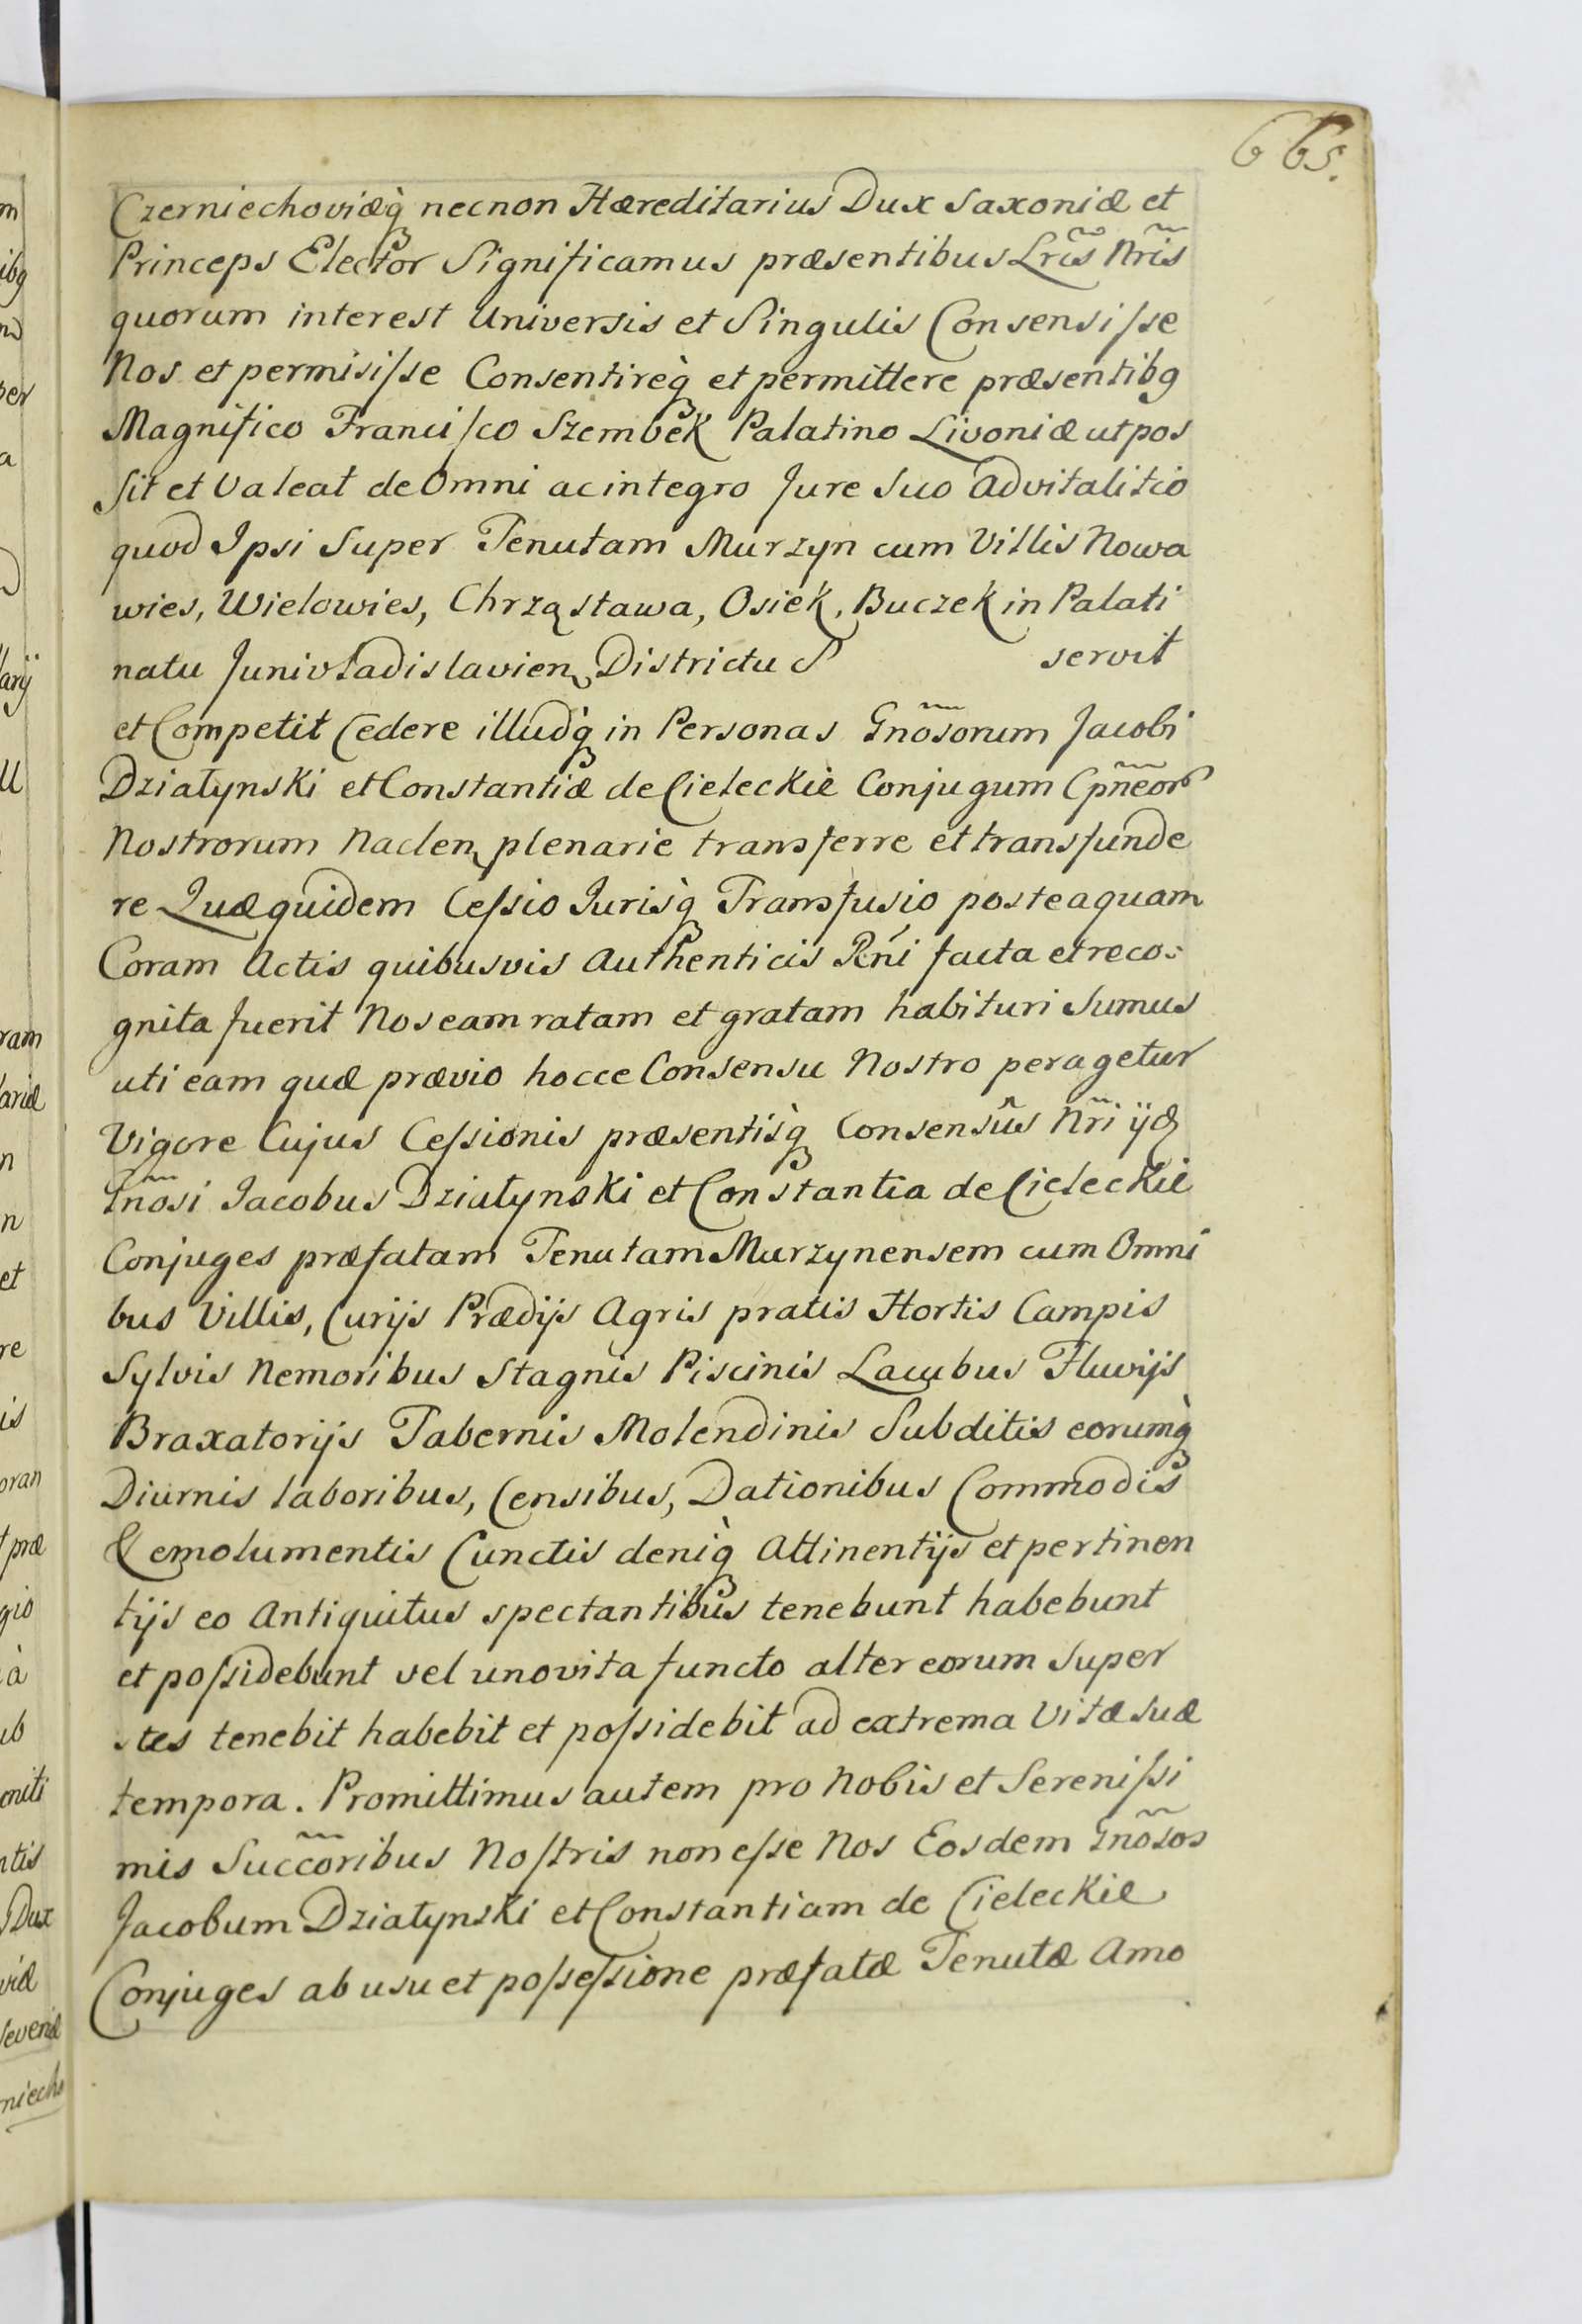 665.
Czerniechoviæq̀ necnon Hæreditarius Dux Saxoniæ et
Princeps Elector Significamus præsentibus Lrĩs Nrĩs
quorum interest Universis et Singulis Consensiſse
Nos et permisiſse Consentireq̀ et permittere præsentibꝫ
Magnifico Franciſco Szembek Palatino Livoniæ ut pos
sit et Valeat de Omni ac integro Jure Suo advitalitio
quod Ipsi Super Tenutam Murzyn cum Villis Nowa
wies, Wielowies, Chrząstawa, Osiek, Buczek in Palati
natu Junivładislavien, Districtu S servit
et Competit Cedere illudq̀ in Personas Gnõsorum Jacobi
Działynski et Constantiæ de Cieleckie Conjugum Cpñeor
Nostrorum Naclen, plenarie transferre et transfunde
re Quæquidem Ceſsio Jurisq̀ Transfusio posteaquam
Coram Actis quibusvis Authenticis Rñi facta et reco:
gnita fuerit Nos eam ratam et gratam habituri Sumus
uti eam quæ prævio hocce Consensu Nostro peragetur
Vigore Cujus Ceſsionis præsentisq̀ Consensûs Nrĩ ijd
Gnõsi Jacobus Działynski et Constantia de Cieleckie
Conjuges præfatam Tenutam Murzynensem cum Omni
bus Villis, Curijs Prædijs Agris pratis Hortis Campis
Sylvis Nemoribus Stagnis Piscinis Lacubus Fluvijs
Braxatorijs Tabernis Molendinis Subditis eorumq̀
Diurnis laboribus, Censibus, Dationibus Commodis
& emolumentis Cunctis deniq̀ Attinentijs et pertinen
tijs eo Antiquitus spectantibus tenebunt habebunt
et poſsidebunt vel uno vita functo alter eorum Super
stes tenebit habebit et poſsidebit ad extrema Vitæ Suæ
tempora. Promittimus autem pro Nobis et Sereniſsi
mis Succõribus Noſtris non eſse Nos Eosdem Gnõsos
Jacobum Działynski et Constantiam de Cieleckie
Conjuges ab usu et poſseſsione præfatæ Tenutæ Amo